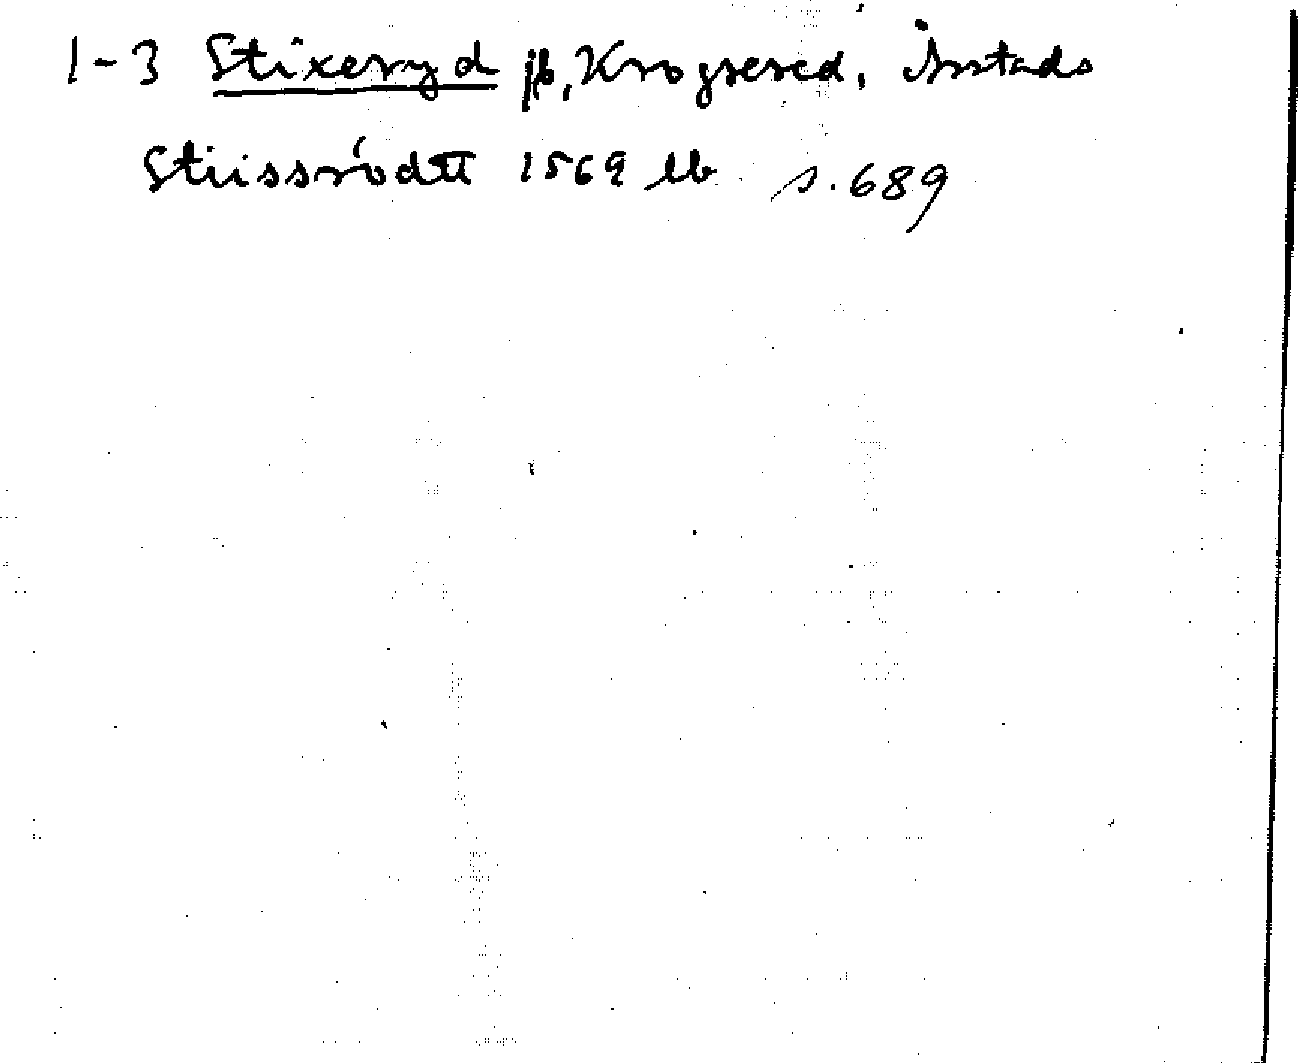 1-3 Stixeryd jb, Krogsered, Årstads
Stiissrödtt 1569 lb s. 689